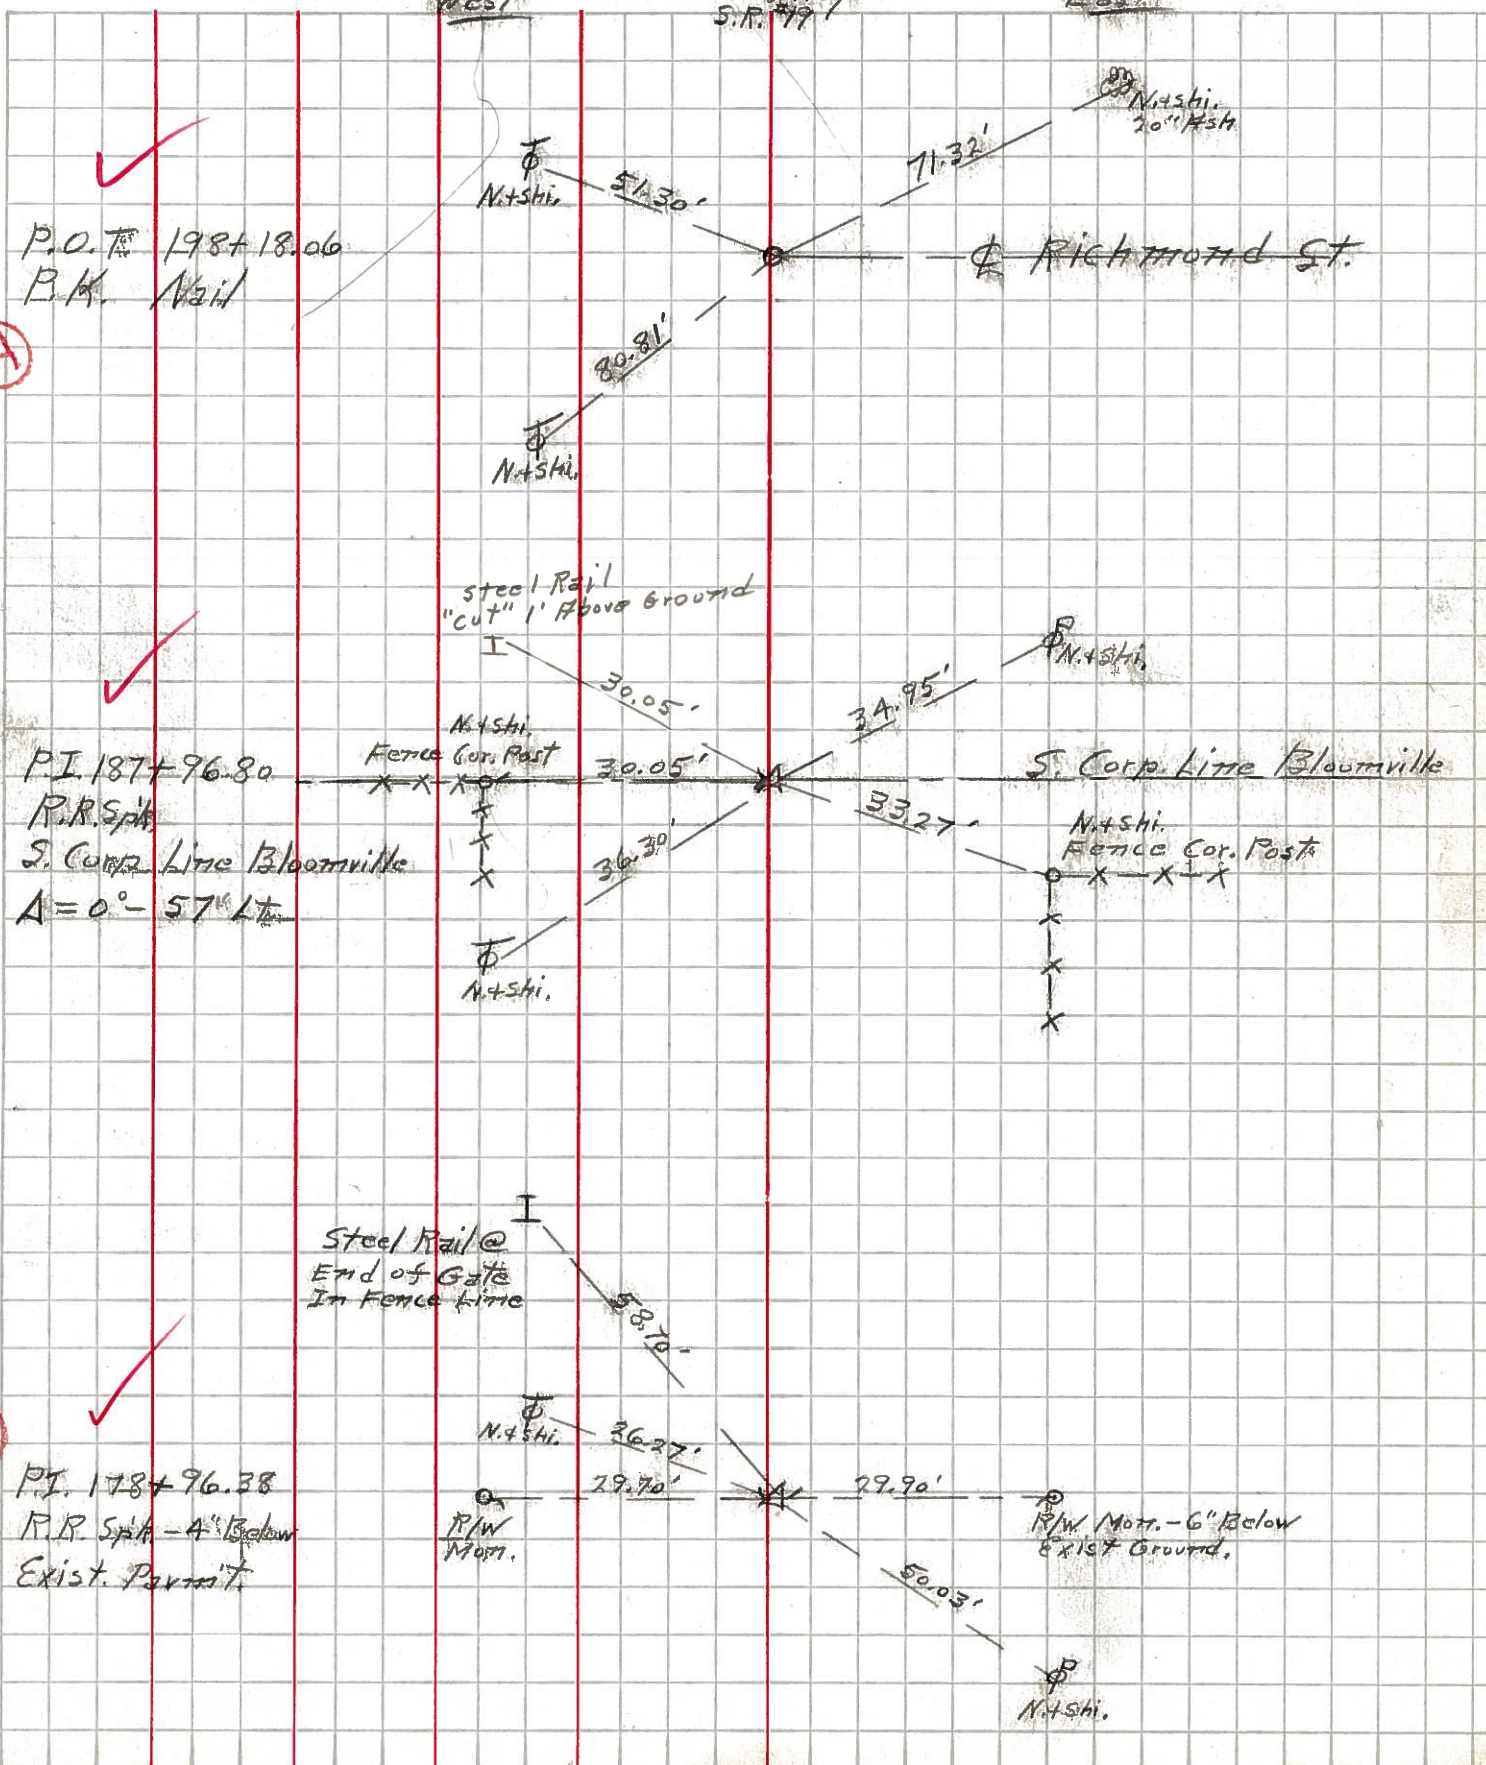 West
S.R. #19
East
N.+shi.
20" Ash
71.32'
N.+shi.
51.30'
P.O.T. 198+18.06
P.K. Nail
℄ Richmond St.
A
80.81'
N.+shi.
Steel Rail
"cut" 1' Above Ground
I
30.05'
34.95'
P
N.+shi.
N.+shi.
Fence Cor. Post
30.05'
S. Corp. Line Bloomville
P.I. 187+96.80
R.R. Spk.
S. Corp. Line Bloomville
Δ = 0°-57' Lt.
33.27'
N.+shi.
Fence Cor. Post
36.30'
N.+shi.
I
Steel Rail @
End of Gate
In Fence Line
58.70'
N.+shi.
36.27'
P.I. 178+96.38
R.R. Spk - 4" Below
Exist. Pavm't.
29.70'
29.90'
R/W
Mon.
R/W Mon. - 6" Below
Exist Ground.
50.03'
P
N.+shi.